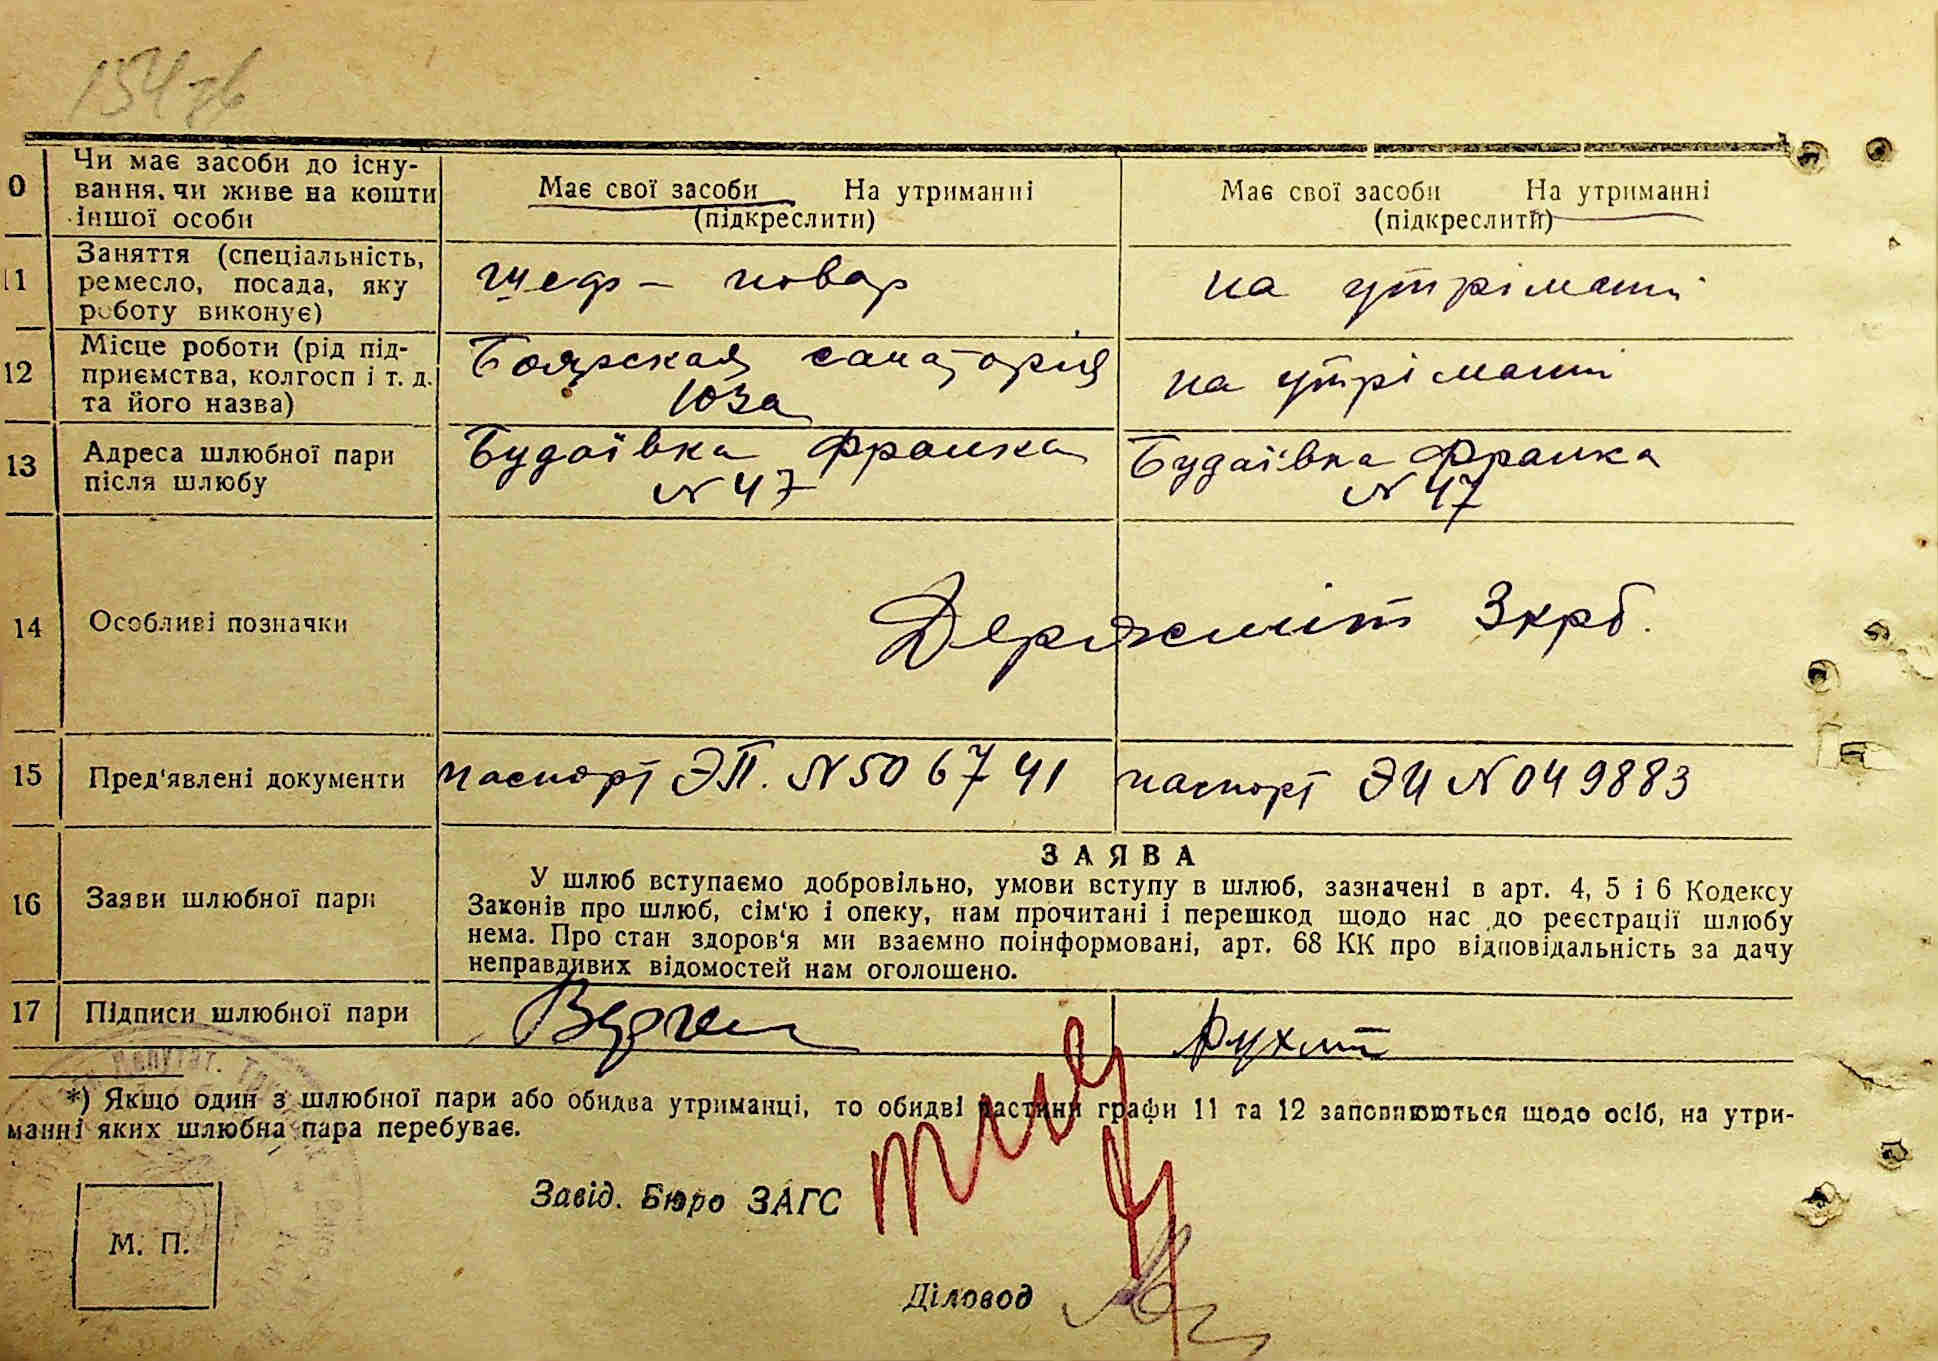 154 зв
0 Чи має засоби до існу-
вання, чи живе на кошти
іншої особи
Має свої засоби На утриманні
(підкреслити)
Має свої засоби На утриманні
(підкреслити)
11 Заняття (спеціальність,
ремесло, посада, яку
роботу виконує)
шеф - повар
на утріманні
12 Місце роботи (рід під-
приємства, колгосп і т. д.
та його назва)
Боярская санаторія
ЮЗа
на утріманні
13 Адреса шлюбної пари
після шлюбу
Будаївка Франка
N 47
Будаївка Франка
N 47
14 Особливі позначки
Держмит 3крб.
15 Пред'явлені документи
паспорт ЭП. N 506741
паспорт ЭИ N 049883
16 Заяви шлюбної пари
ЗАЯВА
У шлюб вступаємо добровільно, умови вступу в шлюб, зазначені в арт. 4, 5 і 6 Кодексу
Законів про шлюб, сім'ю і опеку, нам прочитані і перешкод щодо нас до реєстрації шлюбу
нема. Про стан здоров'я ми взаємно поінформовані, арт. 68 КК про відповідальність за дачу
неправдивих відомостей нам оголошено.
17 Підписи шлюбної пари
*) Якщо один з шлюбної пари або обидва утриманці, то обидві частини графи 11 та 12 заповнюються щодо осіб, на утри-
манні яких шлюбна пара перебуває.
Завід. Бюро ЗАГС
М. П.
Діловод